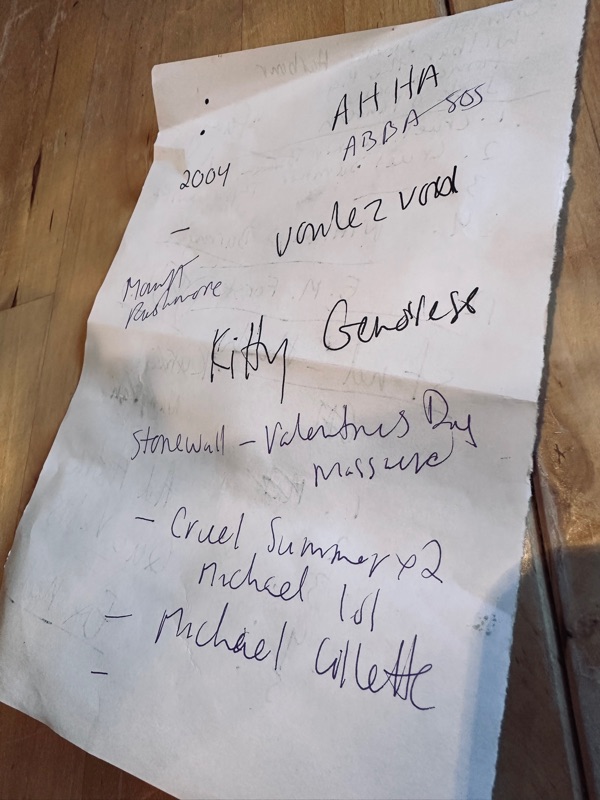 AHHA
ABBA SOS
2004
—
Voulez vous
Mount
Rushmore
Kitty Genovese
Stonewall - Valentines Day
Massacre
- Cruel Summer x2
Michael lol
- Michael Collette
—